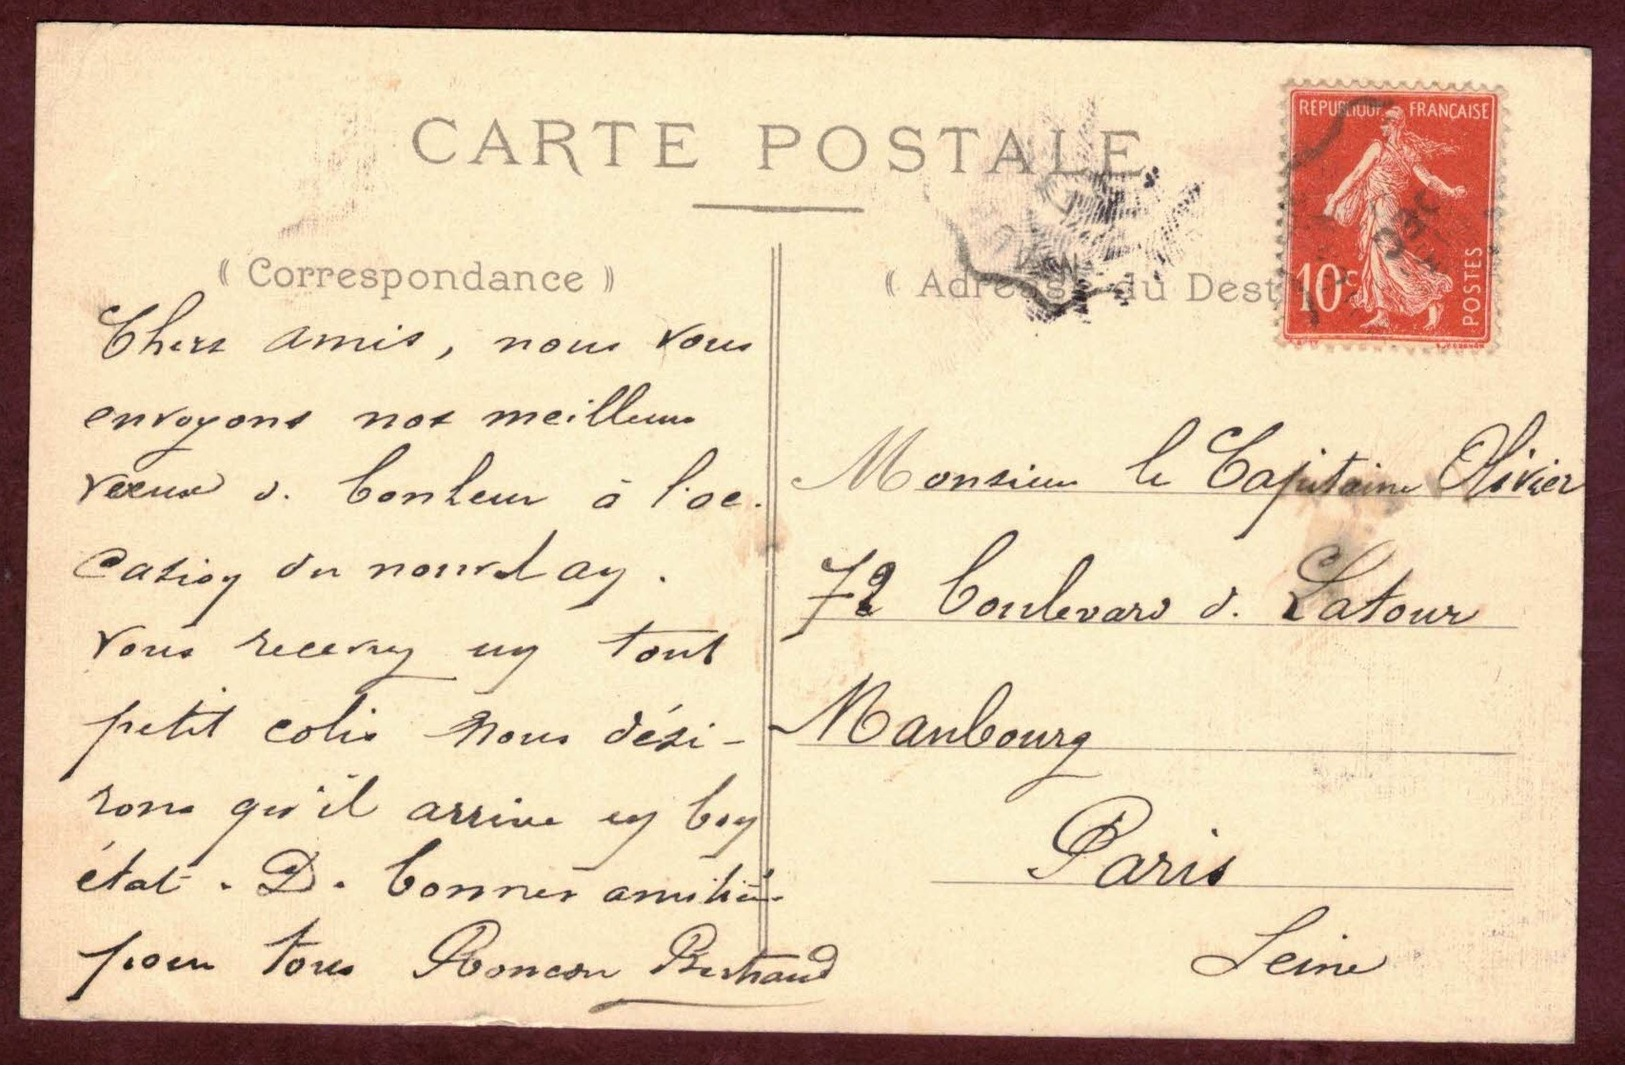 CARTE POSTALE
RÉPUBLIQUE FRANÇAISE
10c
POSTES
DEC
(Correspondance)
Chers amis, nous vous
envoyons nos meilleurs
vœux d. bonheur à l'oc-
casion du nouvel an.
Vous recevrez un tout
petit colis nous dési-
rons qu'il arrive en bon
état. D. bonnes amitiés
pour tous Bertrand
(Adresse du Dest
Monsieur le Capitaine Olivier
72 boulevard d. Latour
Maubourg
Paris
Seine